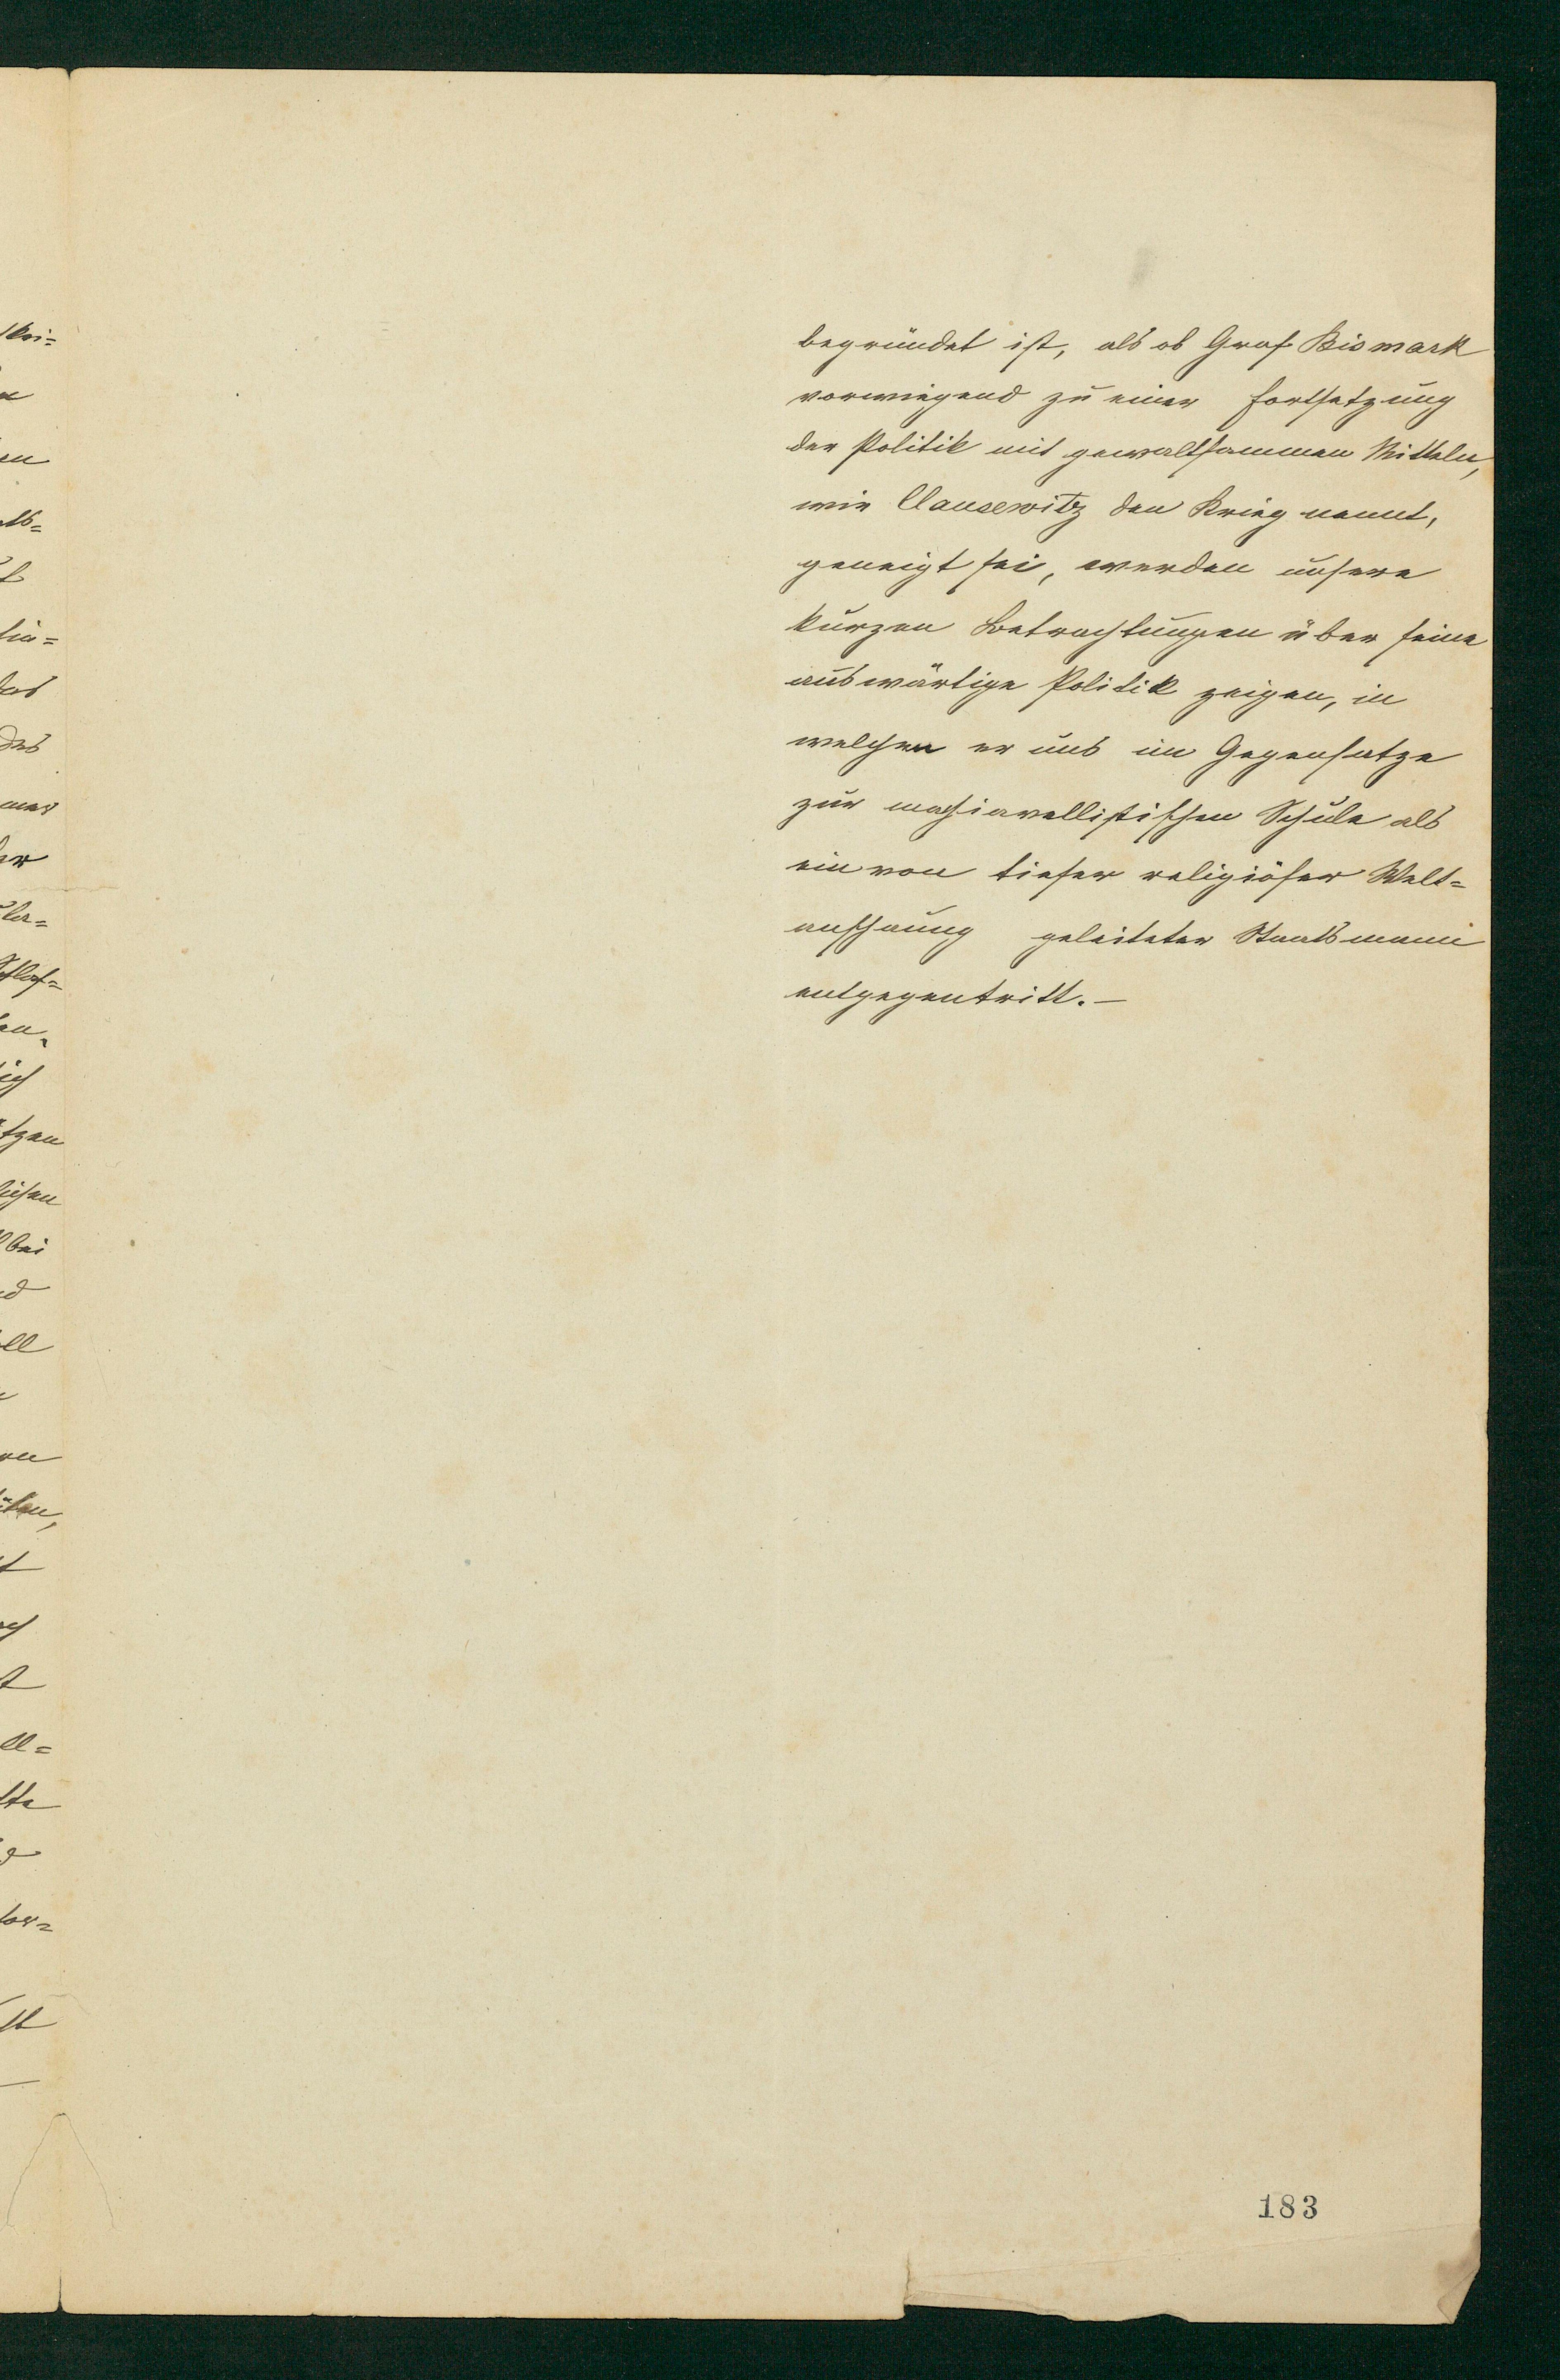 begründet ist, als ob Graf Bismark
vorwiegend zu einer Fortsetzung
der Politik mit gewaltsammen Mitteln,
wie Clausewitz den Krieg nennt,
geneigt sei, werden unsere
kurzen Betrachtungen über seine
auswärtige Politik zeigen, in
welchen er uns im Gegensatze
zur machiavellistischen Schule als
ein von tiefer religiöser Welt=
anschauung geleiteter Staatsmann
entgegentritt.—
183